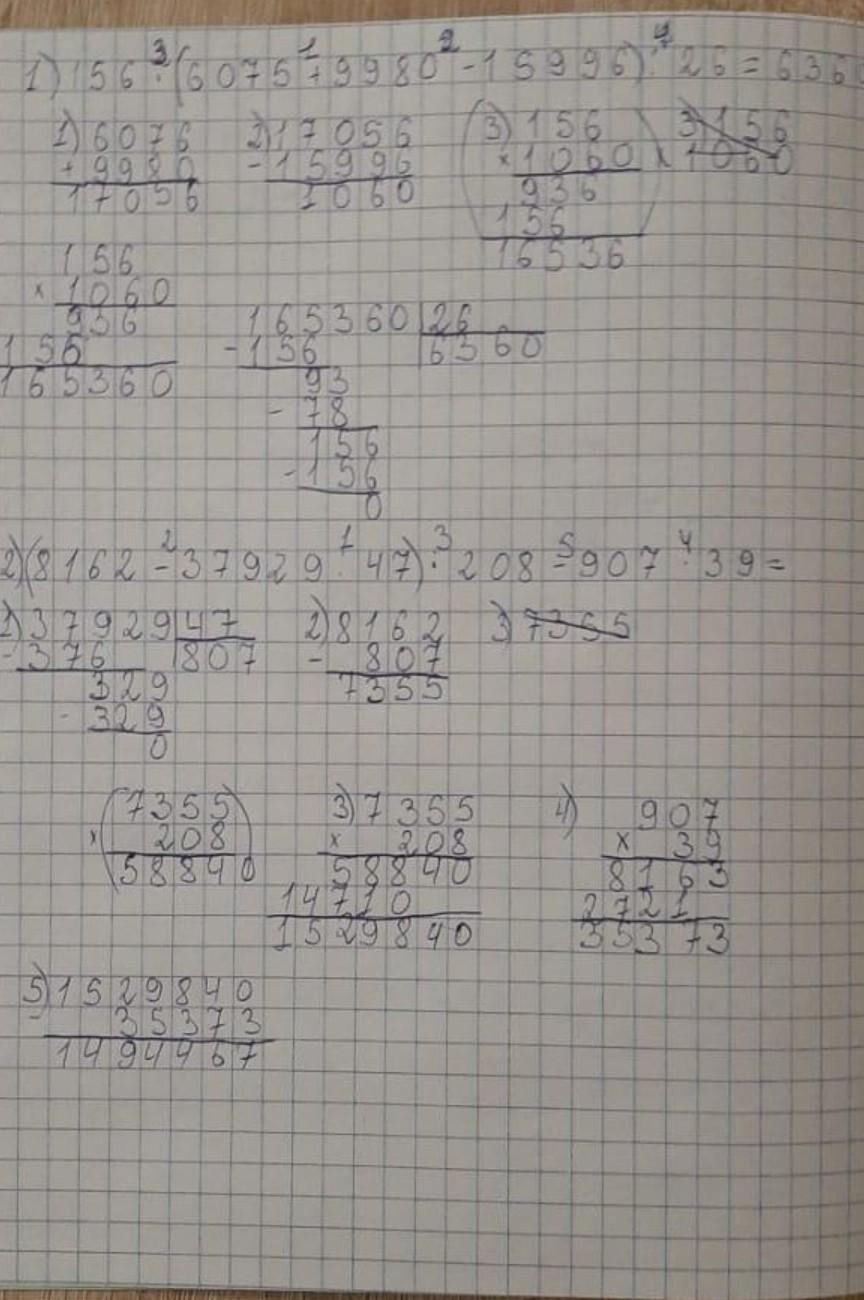 1) 156 · (6075 + 9980 - 15996) : 26 = 636
3 1 2 4
1) 6076 2) 17056 (3) 156 3) 156
+ 9980 - 15996 × 1060 × 1060
17056 1060 936
156
16536
156
× 1060
936
156
165360
165360 | 26
- 156 6360
93
- 78
156
- 156
0
2) (8162 - 37929 : 47) · 208 - 907 · 39 =
2 1 3 5 4
1) 37929 | 47 2) 8162 3) 7355
- 376 807 - 807
329 7355
- 329
0
(7355) 3) 7355 4) 907
× 208 × 208 × 39
58840 58840 8163
14710 2721
1529840 35373
5) 1529840
- 35373
1494467